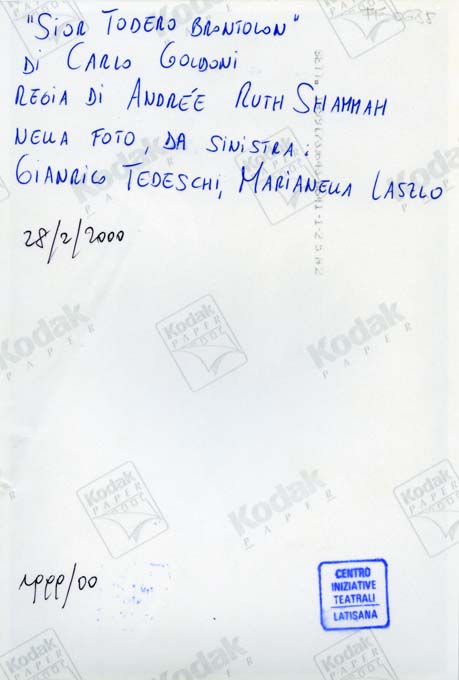 "SIOR TODERO BRONTOLON"
DI CARLO GOLDONI
REGIA DI ANDRÉE RUTH SHAMMAH
NELLA FOTO, DA SINISTRA:
GIANRICO TEDESCHI, MARIANELLA LASZLO
28/2/2000
Kodak
PAPER
1999/00
CENTRO
INIZIATIVE
TEATRALI
LATISANA